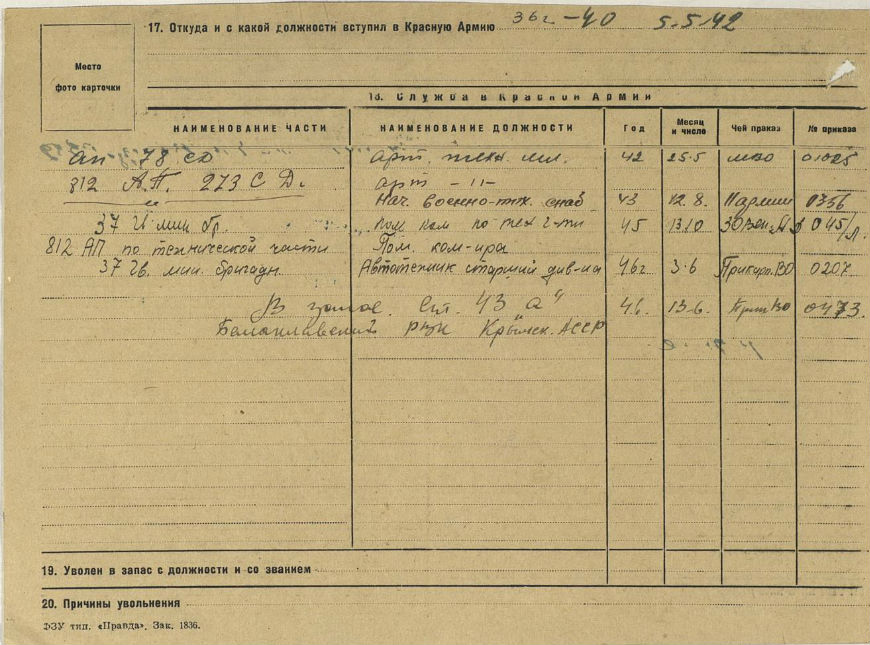 Место
фото карточки
17. Откуда и с какой должности вступил в Красную Армию 36г-40 5.5.42
18. Служба в Красной Армии
НАИМЕНОВАНИЕ ЧАСТИ НАИМЕНОВАНИЕ ДОЛЖНОСТИ Год Месяц и число Чей приказ № приказа
ап 78 сд арт. техн. мл. 42 25.5 МВО 01025
812 А.П. 273 С Д. арт -"-
" Нач. военно-тх. снаб 43 12.8. 0356
37 Гв мин бр. пом ком по тех ч-ти 45 13.10 045/л.
812 АП по технической части Пом. ком-ира
37 Гв. мин. бригады Автотехник старший див-на 46г 3.6 ВО 0207
В запас. Ст. 43 "а" 46. 13-6. ВО 0473.
Балаклавский Крымск. АССР
19. Уволен в запас с должности и со званием
20. Причины увольнения
ФЗУ тип. «Правда». Зак. 1836.